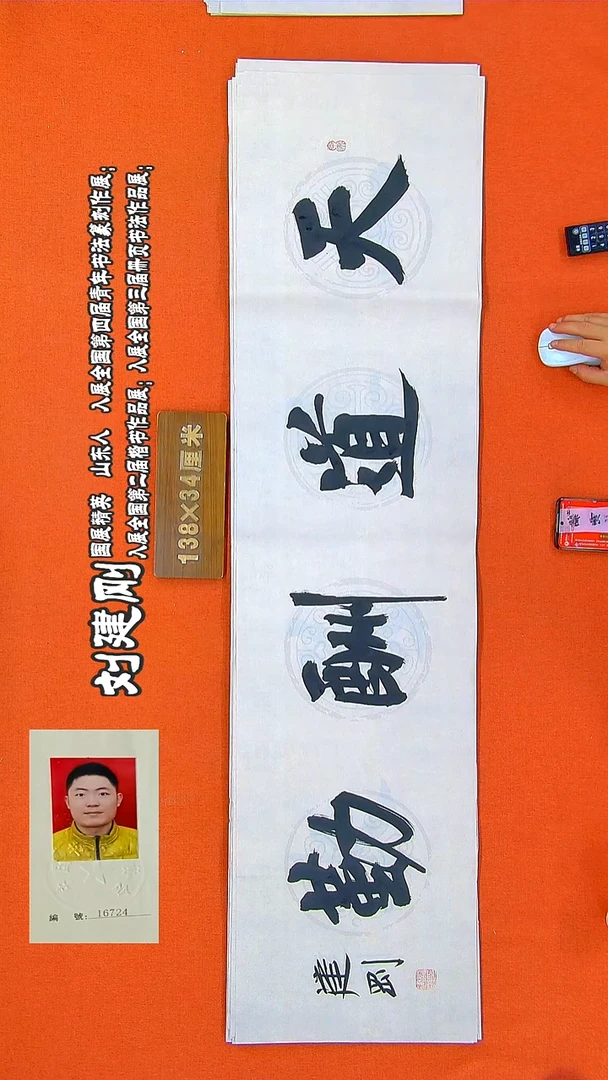 天道酬勤
建刚
刘建刚
国展精英 山东人 入展全国第四届青年书法篆刻作展；
入展全国第二届楷书作品展；入展全国第三届册页书法作品展；
138×34厘米
編 號：16724